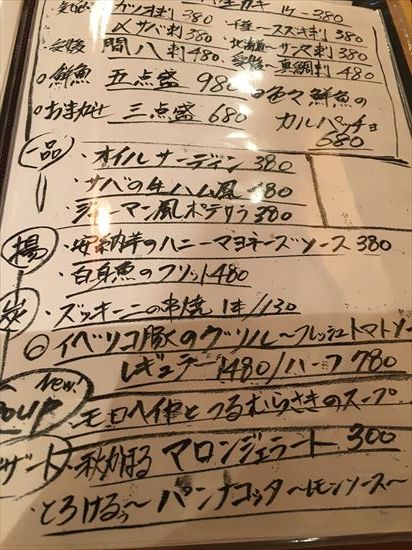 ゲソ刺 380 生ガキ 380
〆サバ刺 380 千葉〜スズキ刺 380
愛媛 間八刺 480 北海道〜サンマ刺 380
愛媛〜真鯛刺 480
○鮮魚 五点盛 980 ○色々鮮魚の
○おまかせ 三点盛 680 カルパッチョ
680
一品 ・オイルサーディン 380
・サバの生ハム風 480
・ジャーマン風ポテサラ 380
揚 ・安納芋のハニーマヨネーズソース 380
・白身魚のフリット 480
炭 ・ズッキーニの串焼 1本/130
◎イベリコ豚のグリル〜フレッシュトマトソ
レギュラー1480/ハーフ 780
New
soup ・モロヘイヤとつるむらさきのスープ
デザート ・秋かほる マロンジェラート 300
・とろけるぅ〜 パンナコッタ〜レモンソース〜